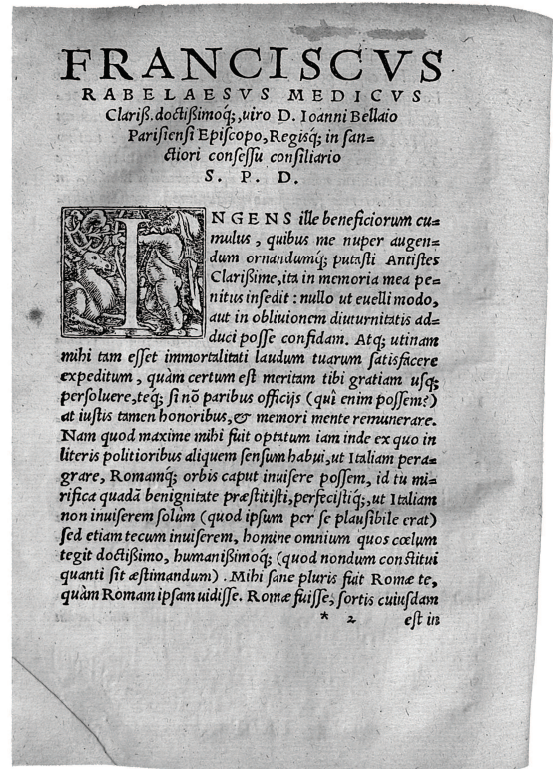 FRANCISCVS
RABELAESVS MEDICVS
Clariß. doctißimoq́;, uiro D. Ioanni Bellaio
Parisiensi Episcopo, Regisq́; in san=
ctiori consessu consiliario
S. P. D.
INGENS ille beneficiorum cu=
mulus, quibus me nuper augen=
dum ornandumq́; putasti Antistes
Clarißime, ita in memoria mea pe=
nitus insedit: nullo ut euelli modo,
aut in obliuionem diuturnitatis ad=
duci posse confidam. Atq; utinam
mihi tam esset immortalitati laudum tuarum satisfacere
expeditum, quàm certum est meritam tibi gratiam usq;
persoluere, teq́; si nõ paribus officijs (quî enim possem?)
at iustis tamen honoribus, & memori mente remunerare.
Nam quod maxime mihi fuit optatum iam inde ex quo in
literis politioribus aliquem sensum habui, ut Italiam pera=
grare, Romamq́; orbis caput inuisere possem, id tu mi=
rifica quadã benignitate præstitisti, perfecistiq́;, ut Italiam
non inuiserem solùm (quod ipsum per se plausibile erat)
sed etiam tecum inuiserem, homine omnium quos cœlum
tegit doctißimo, humanißimoq́; (quod nondum constitui
quanti sit æstimandum). Mihi sane pluris fuit Romæ te,
quàm Romam ipsam uidisse. Romæ fuisse, sortis cuiusdam
* 2 est in